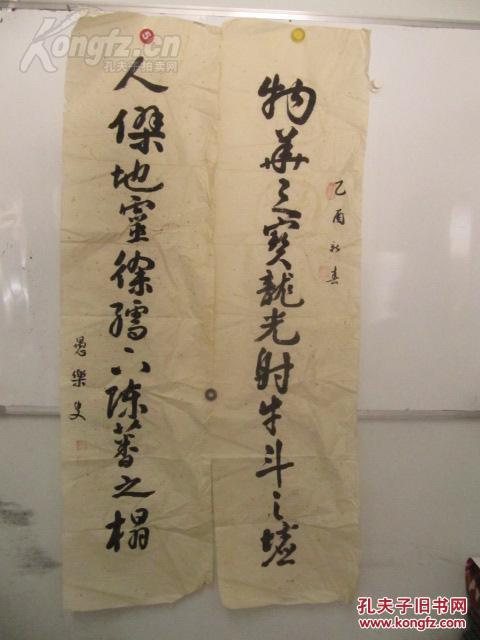 乙酉初春
物華天寶龍光射牛斗之墟
人傑地靈徐孺下陳蕃之榻
愚樂叟
Kongfz.com
孔夫子拍卖网
孔夫子旧书网
www.kongfz.com